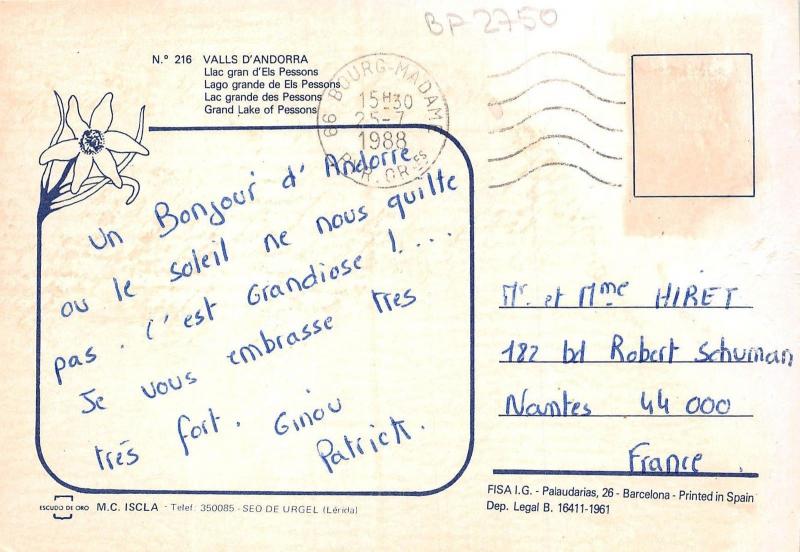 BP 2750
N.º 216 VALLS D'ANDORRA
Llac gran d'Els Pessons
Lago grande de Els Pessons
Lac grande des Pessons
Grand Lake of Pessons
66 BOURG-MADAME
15H30
25-7
1988
PYR. OR-ES
Un Bonjour d' Andorre
ou le soleil ne nous quitte
pas. C'est Grandiose !....
Je vous embrasse tres
trés fort. Ginou
Patrick.
Mr et Mme HIRET
182 bd Robert Schuman
Nantes 44 000
France.
ESCUDO DE ORO M.C. ISCLA - Telef. 350085 - SEO DE URGEL (Lérida)
FISA I.G. - Palaudarias, 26 - Barcelona - Printed in Spain
Dep. Legal B. 16411-1961